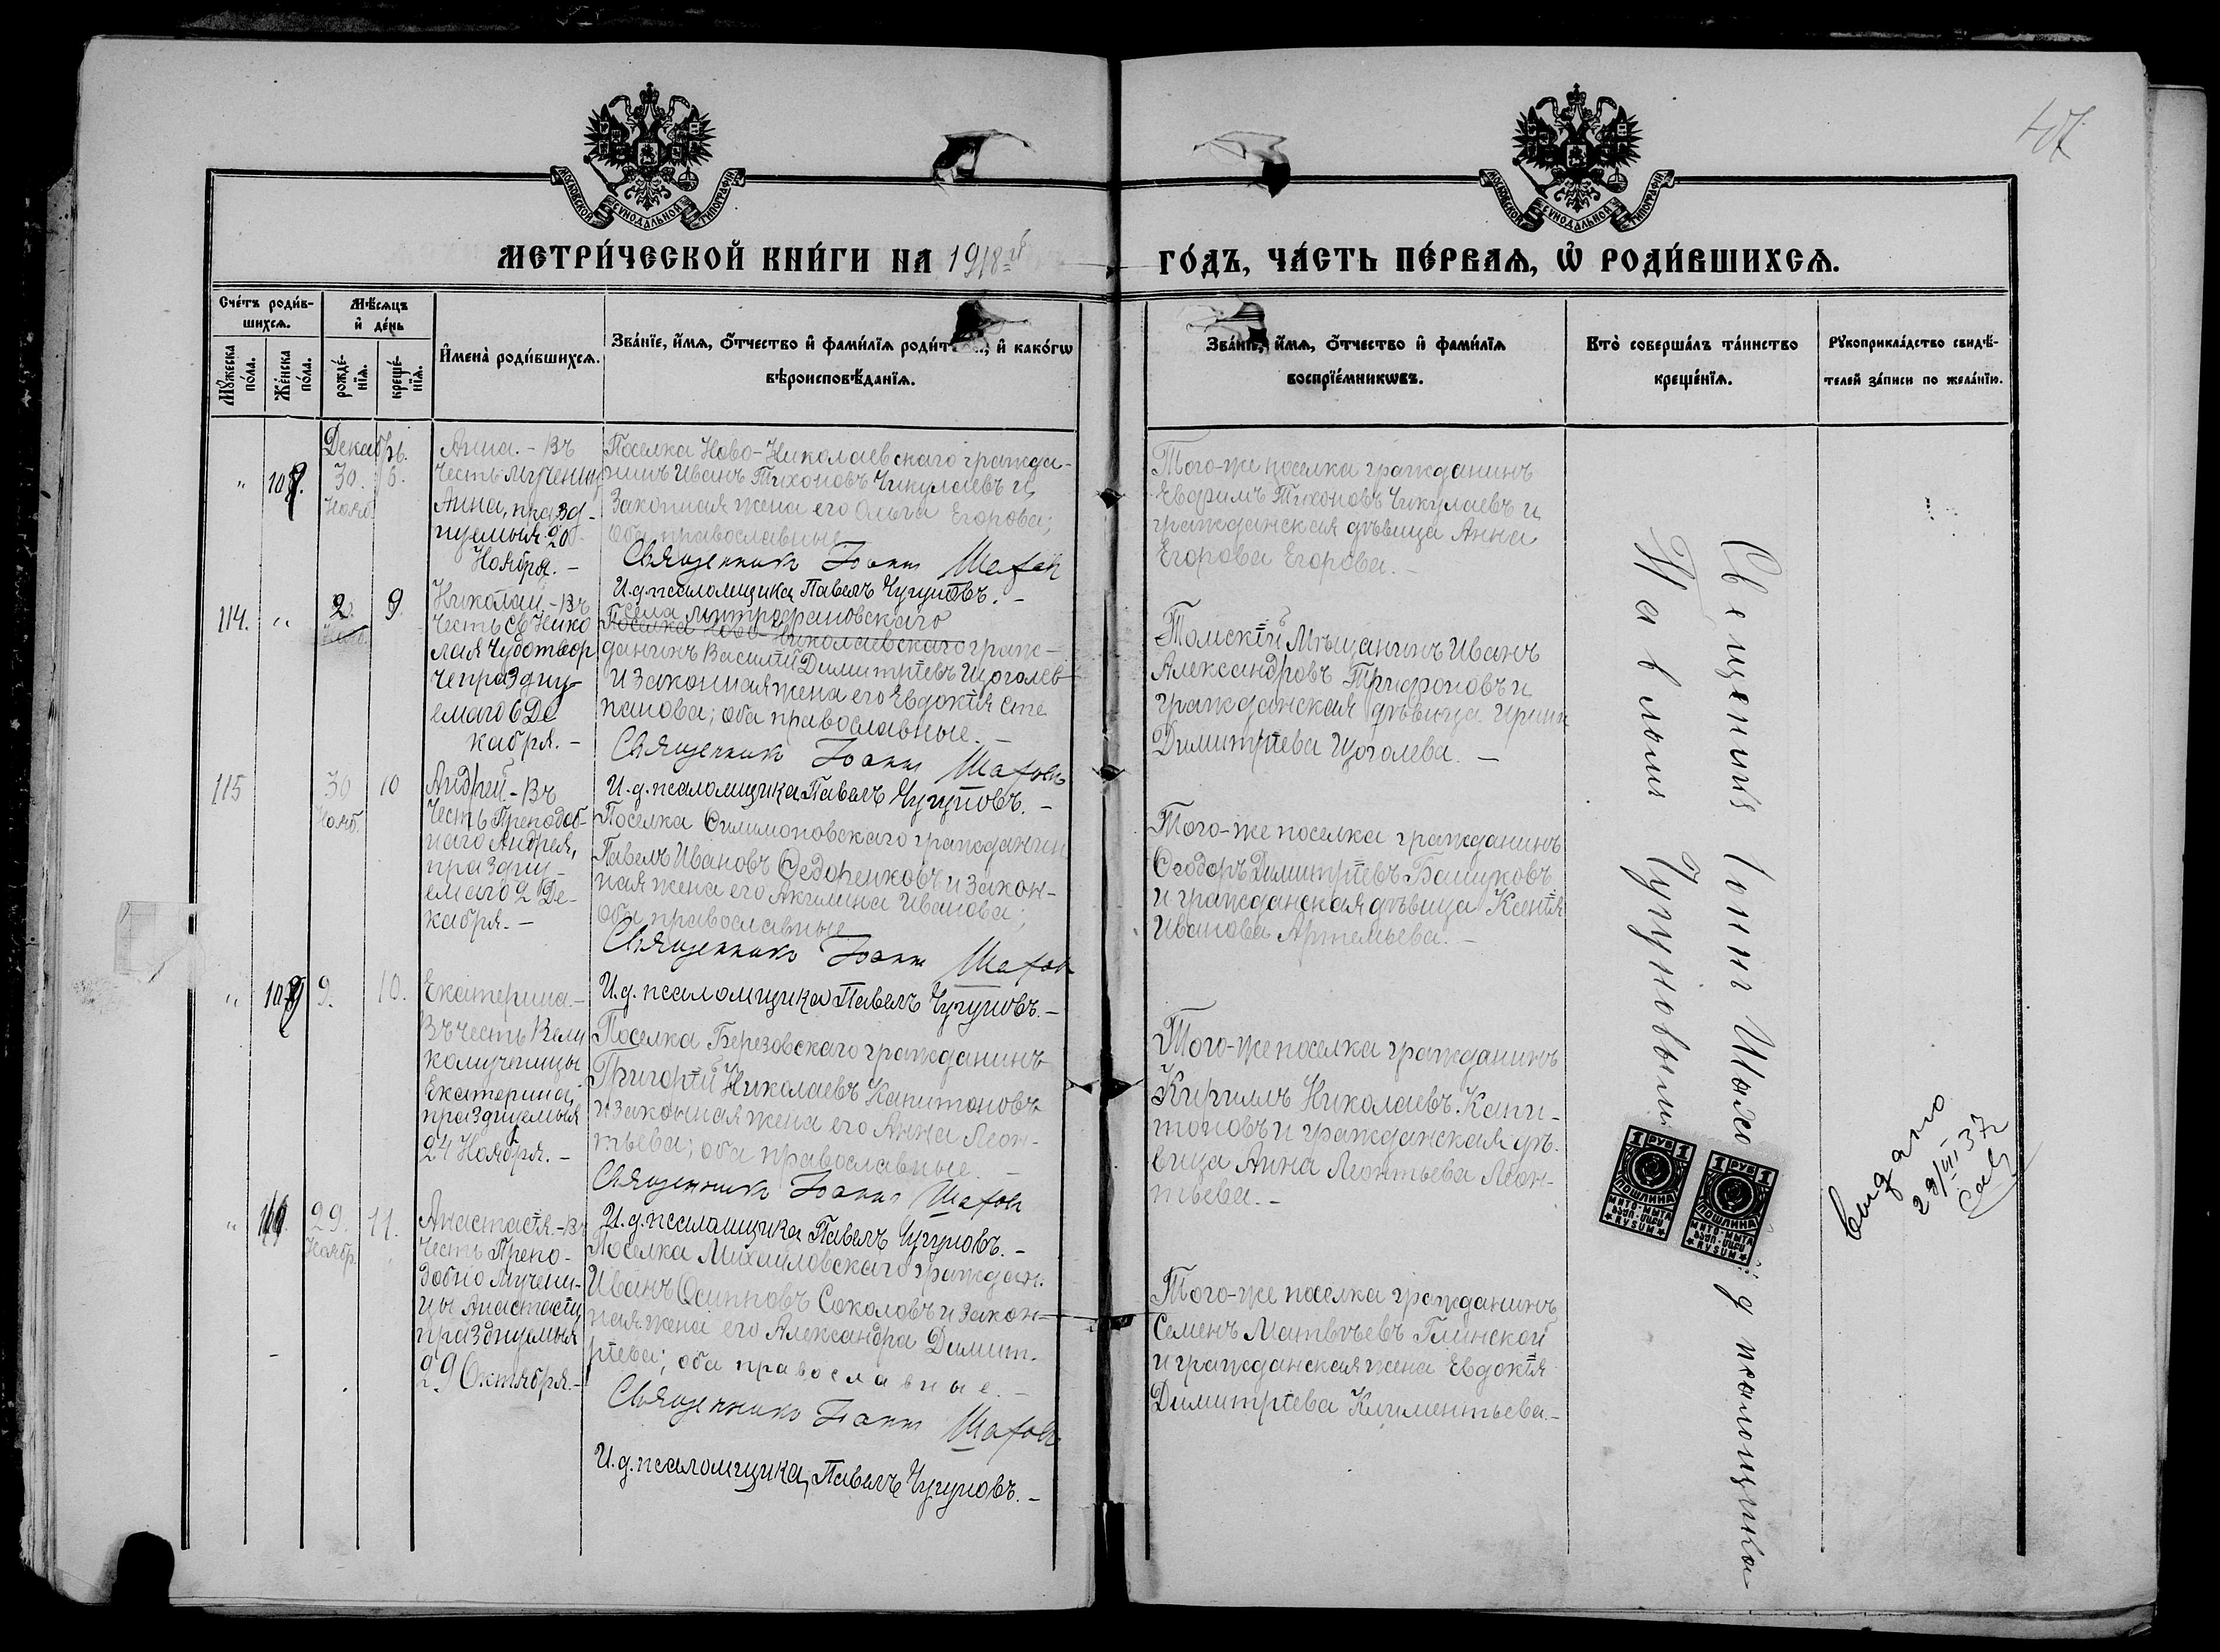 47
МОСКОВСКОЙ СУНОДАЛЬНОЙ ТИПОГРАФІИ
МОСКОВСКОЙ СУНОДАЛЬНОЙ ТИПОГРАФІИ
МЕТРИ́ЧЕСКОЙ КНИ́ГИ НА 1918й
ГО́ДЪ, ЧА́СТЬ ПЕ́РВАѦ, Ѡ РОДИ́ВШИХСѦ.
Сче́тъ роди́в-
шихсѧ.
Мѣ́сѧцъ
и҆ де́нь
Мꙋ́жеска
по́ла.
Же́нска
по́ла.
рожде́-
нїѧ.
креще́-
нїѧ.
И҆мена̀ роди́вшихсѧ.
Зва́нїе, и҆́мѧ, ѻ҆́тчество и҆ фами́лїѧ роди́т , и҆ како́гѡ
вѣроисповѣ́данїѧ.
Зва́нїе, и҆́мѧ, ѻ҆́тчество и҆ фами́лїѧ
воспрїе́мникѡвъ.
Кто̀ соверша́лъ та́инство
креще́нїѧ.
Рꙋкоприкла́дство свидѣ́-
телей за́писи по жела́нїю.
Декабрь.
" 108. 30. 6.
Нояб
Анна. - Въ
честь мучениц
Анна, празд-
нуемыя 20
Ноября. -
Поселка Ново-Николаевскаго гражда-
нинъ Иванъ Тихоновъ Чикулаевъ и
Законная жена его Ольга Егорова;
оба православные
Священникъ Іоаннъ Шахов
И.д. псаломщика Павелъ Чугуновъ. -
Того-же поселка гражданинъ
Евфимъ Тихоновъ Чикулаевъ и
гражданская дѣвица Анна
Егорова Егорова. -
114. " 2. 9.
Нояб.
Николай. - Въ
честь Св Нико
лая Чудотвор
ча праздну-
емаго 6 Де
кабря. -
Села Митрофановскаго
Поселка Ново-Николаевскаго граж-
данинъ Василій Димитріевъ Щоголев
и законная жена его Евдокія Сте
панова; оба православные. -
Священникъ Іоаннъ Шаховъ
И.д. псаломщика Павелъ Чугуновъ. -
Томскій Мѣщанинъ Иванъ
Александровъ Трифоновъ и
гражданская дѣвица Ирина
Димитріева Щоголева. -
115 30 10
Нояб.
Андрей - Въ
честь Преподоб-
наго Андрея,
праздну-
емаго 2 Де-
кабря. -
Поселка Филимоновскаго гражданин
Павелъ Ивановъ Федоренковъ и Закон-
ная жена его Акилина Иванова;
Оба православные
Священникъ Іоаннъ Шахов
И.д. псаломщика Павелъ Чугуновъ. -
Того-же поселка гражданинъ
Ѳеодоръ Димитріевъ Башуковъ
и гражданская дѣвица Ксенія
Иванова Артемьева. -
" 109 9. 10.
Екатерина. -
Въ честь Вели
комученицы
Екатерина,
празднуемыя
24 Ноября. -
Поселка Березовскаго гражданинъ
Григорій Николаевъ Капитоновъ
и законная жена его Анна Леон-
тьева; оба православные. -
Священникъ Іоаннъ Шахов
И.д. псаломщика Павелъ Чугуновъ. -
Того-же поселка гражданинъ
Кириллъ Николаевъ Капи-
тоновъ и гражданская дѣ-
вица Анна Леонтьева Леон-
тьева. -
" 29. 11.
Ноябр.
Анастасія. - Въ
честь Препо-
добно Мучени-
цы Анастасіи
празднуемыя
29 Октября. -
Поселка Михайловскаго граждан.
Иванъ Осиповъ Соколовъ и закон-
ная жена его Александра Димит-
ріева; оба православные. -
Священникъ Іоаннъ Шаховъ
И.д. псаломщика Павелъ Чугуновъ. -
Того-же поселка гражданинъ
Семенъ Матвѣевъ Глинской
и гражданская жена Евдокія
Димитріева Климентьева. -
Священникъ Іоаннъ Шахо и д псаломщика
Павелъ Чугуновъ
1 РУБ 1
ПОШЛИНА
МИТО-МЫТА
RYSUM
1 РУБ 1
ПОШЛИНА
МИТО-МЫТА
RYSUM
выдано
29/VII 37г